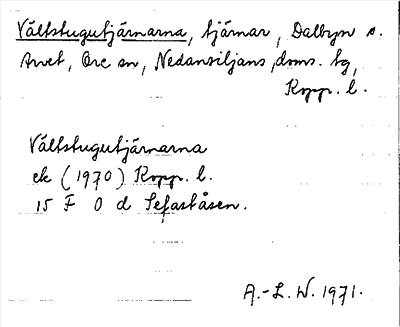 Vältstugutjärnarna, tjärnar, Dalbyn o.
Arvet, Ore sn, Nedansiljans doms. tg,
Kopp. l.
Vältstugutjärnarna
ek (1970) Kopp. l.
15 F 0 d Sefaståsen.
A.-L. W. 1971.